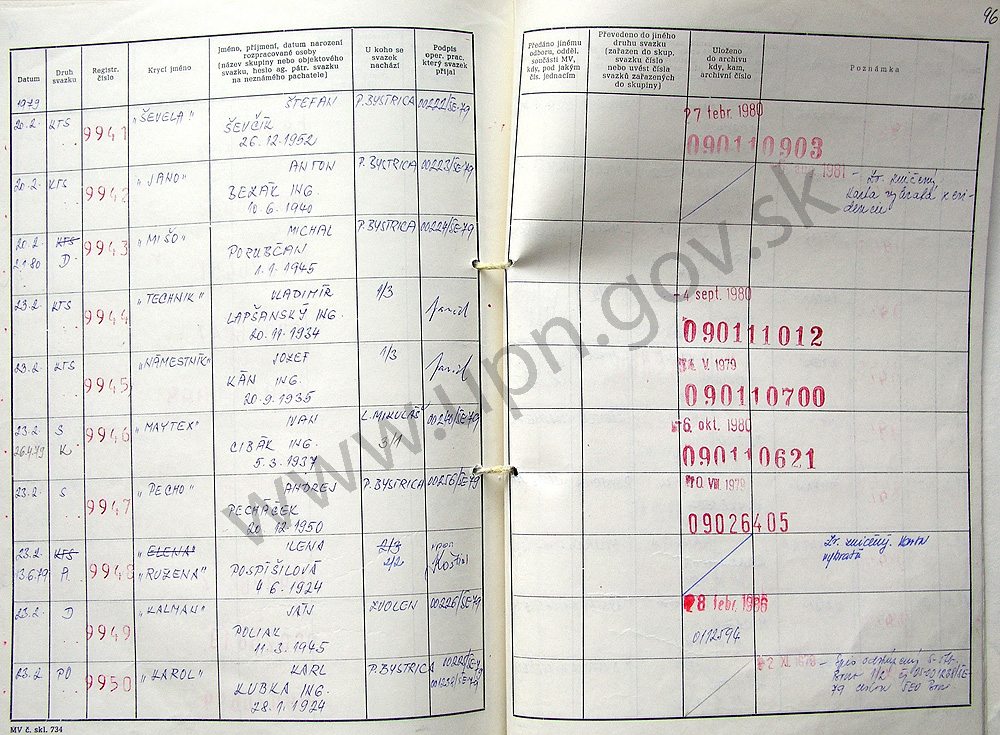 96
Datum
Druh svazku
Registr. číslo
Krycí jméno
Jméno, příjmení, datum narození
rozpracované osoby
(název skupiny nebo objektového
svazku, heslo ag. pátr. svazku
na neznámého pachatele)
U koho se
svazek
nachází
Podpis
oper. prac.
který svazek
přijal
Předáno jinému
odboru, odděl.
součásti MV,
kdy, pod jakým
čís. jednacím
Převedeno do jiného
druhu svazku
(zařazen do skup.
svazku číslo
nebo uvést čísla
svazků zařazených
do skupiny)
Uloženo
do archivu
kdy, kam,
archivní číslo
Poznámka
1979
20.2. KTS 9941 "ŠEVELA" ŠTEFAN P. BYSTRICA 00222/SE-79 27 febr. 1980
ŠEVČÍK
26.12.1952 090110903
20.2. KTS 9942 "JANO" ANTON P. BYSTRICA 00223/SE-79 1981
BEZÁK ING.
10.6.1940
20.2. KTS 9943 "MIŠO" MICHAL P. BYSTRICA 00224/SE-79
2.1.80 D PORUBČAN
1.1.1945
23.2. KTS 9944 "TECHNIK" VLADIMÍR 1/3 -4 sept. 1980
LAPŠANSKÝ ING.
20.11.1934 090111012
23.2. KTS 9945 "NÁMESTNÍK" JOZEF 1/3 V. 1979
KÁN ING.
20.9.1935 090110700
23.2. S 9946 "MAYTEX" IVAN L. MIKULÁŠ 6. okt. 1980
26.4.79 K CIBÁK ING. 3/1
5.3.1937 090110621
23.2. S 9947 "PECHO" ANDREJ P. BYSTRICA 00256/SE-79 10. VIII. 1979
PECHÁČEK
20.12.1950 09026405
23.2. KTS 9948 "ELENA" ILENA 2/3
13.6.79 A "RUŽENA" POSPÍŠILOVÁ 2/2
4.6.1924
23.2. D 9949 "KALMAN" JÁN ZVOLEN 00226/SE-79 28 febr. 1986
POLIAK
11.3.1945 0112594
23.2. PO 9950 "KAROL" KARL P. BYSTRICA
KUBKA ING.
28.1.1924
MV č. skl. 734
www.upn.gov.sk